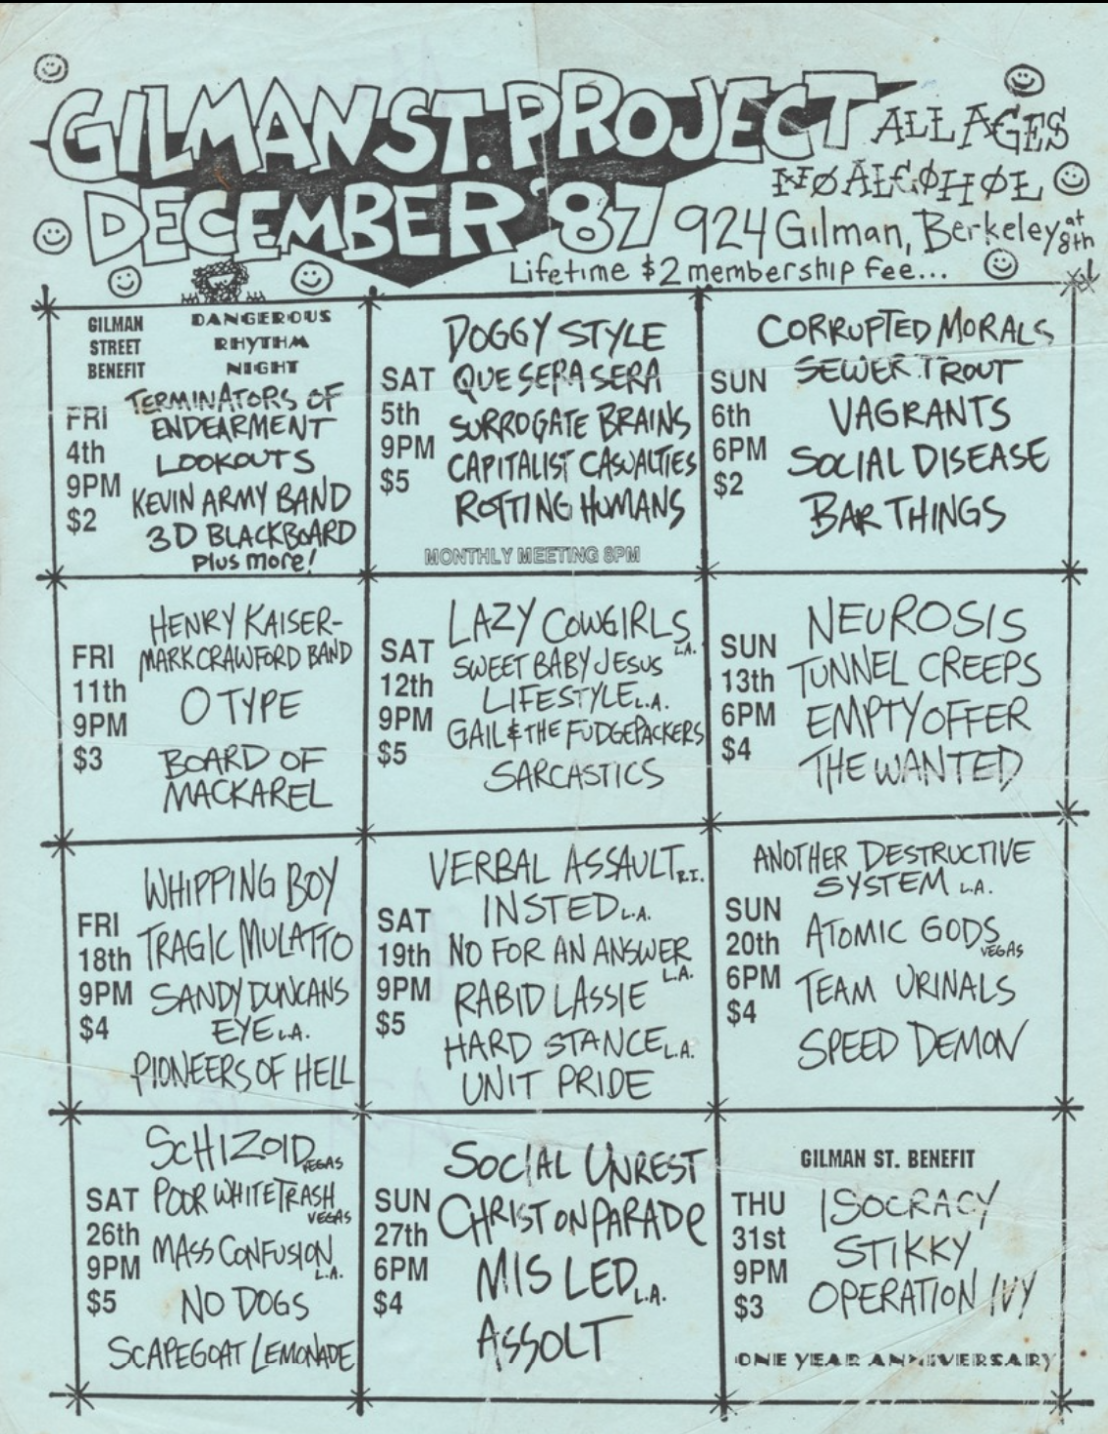 GILMAN ST. PROJECT
ALL AGES
NO ALCOHOL
DECEMBER '87
924 Gilman, Berkeley at 8th
Lifetime $2 membership fee...
GILMAN STREET BENEFIT
DANGEROUS RHYTHM NIGHT
FRI
4th
9PM
$2
TERMINATORS OF
ENDEARMENT
LOOKOUTS
KEVIN ARMY BAND
3D BLACKBOARD
plus more!
SAT
5th
9PM
$5
DOGGY STYLE
QUE SERA SERA
SURROGATE BRAINS
CAPITALIST CASUALTIES
ROTTING HUMANS
MONTHLY MEETING 8PM
SUN
6th
6PM
$2
CORRUPTED MORALS
SEWER TROUT
VAGRANTS
SOCIAL DISEASE
BAR THINGS
FRI
11th
9PM
$3
HENRY KAISER-
MARK CRAWFORD BAND
O TYPE
BOARD OF
MACKAREL
SAT
12th
9PM
$5
LAZY COWGIRLS L.A.
SWEET BABY JESUS
LIFESTYLE L.A.
GAIL & THE FUDGEPACKERS
SARCASTICS
SUN
13th
6PM
$4
NEUROSIS
TUNNEL CREEPS
EMPTY OFFER
THE WANTED
FRI
18th
9PM
$4
WHIPPING BOY
TRAGIC MULATTO
SANDY DUNCANS
EYE L.A.
PIONEERS OF HELL
SAT
19th
9PM
$5
VERBAL ASSAULT R.I.
INSTED L.A.
NO FOR AN ANSWER L.A.
RABID LASSIE
HARD STANCE L.A.
UNIT PRIDE
SUN
20th
6PM
$4
ANOTHER DESTRUCTIVE
SYSTEM L.A.
ATOMIC GODS VEGAS
TEAM URINALS
SPEED DEMON
SAT
26th
9PM
$5
SCHIZOID VEGAS
POOR WHITE TRASH VEGAS
MASS CONFUSION L.A.
NO DOGS
SCAPEGOAT LEMONADE
SUN
27th
6PM
$4
SOCIAL UNREST
CHRIST ON PARADE
MISLED L.A.
ASSOLT
GILMAN ST. BENEFIT
THU
31st
9PM
$3
ISOCRACY
STIKKY
OPERATION IVY
ONE YEAR ANNIVERSARY